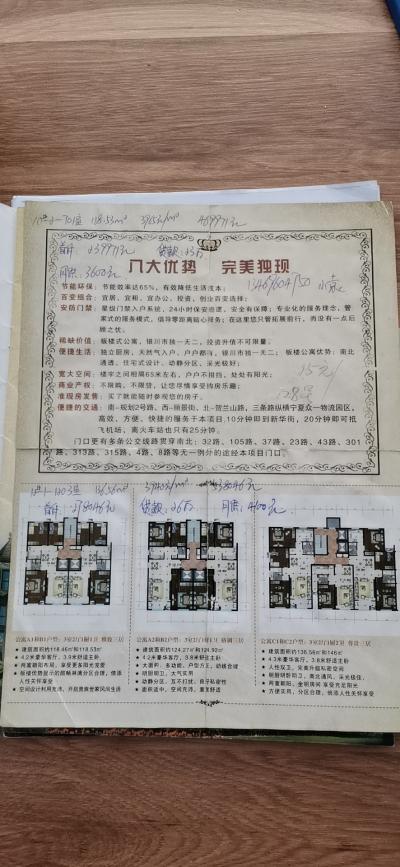 118.53m² 469991元
首付 239991元 贷款:23万
月供:3600元
八大优势 完美独现
节能环保：节能效率达65%，有效降低生活成本；
百变组合：宜居、宜租、宜办公、投资、创业百变选择；
安防门禁：星级门禁入户系统，24小时保安巡逻，安全有保障；专业化的服务理念，管
家式的服务模式，倡导零距离贴心服务；在这里您只管拓展前行，而没有一点后
顾之忧。
稀缺价值：板楼式公寓，银川市独一无二，投资升值不可限量。
便捷生活：独立厨房，天然气入户，户户都有，银川市独一无二；板楼公寓优势：南北
通透、住宅式设计、动静分区、采光极好；
宽大空间：楼宇之间相隔65米左右，户户不阻挡，处处有阳光；
商业产权：不限购、不限贷，让您尽情享受购房乐趣；
准现房发售：买了就能随时参观您的房子。
便捷的交通：南-规划2号路、西-丽景街、北-贺兰山路，三条路纵横宁夏众一物流园区，
高效、方便、快捷的服务于本项目，10分钟即到新华街，20分钟即可抵
飞机场；离火车站也只有25分钟。
门口更有多条公交线路贯穿南北：32路、105路、37路、23路、43路、301
路、313路、315路、4路、8路等无一例外的途经本项目门口。
15元
136.56m²
首付: 贷款:26万 月供:4100元
公寓A1和B1户型：3室2厅1厨1卫
建筑面积约118.46㎡和118.53㎡
4.2米豪华客厅，3.9米舒适主卧
两室朝阳布局，享受更多阳光宠爱
人性关怀享受
空间设计利用充沛，开启贵族世家风尚生活
公寓A2和B2户型：3室2厅1厨1卫
建筑面积约124.27㎡和124.92㎡
4.2米豪华客厅，3.9米舒适主卧
大面积、多功能、户型方正，动线合理
明厨明卫，大气实用
动静分区，互不打扰，良好私密性
面积适中，空间充沛，兼复舒适
公寓C1和C2户型：3室2厅1厨2卫
建筑面积约136.56㎡和146㎡
4.3米豪华客厅，3.8米舒适主卧
人性双卫，完美升级私密空间
明厨明卧明卫，南北通风，采光极佳，
两室朝阳，全明房间 享受充足阳光
方便实用，分区合理，悄添人性关怀享受